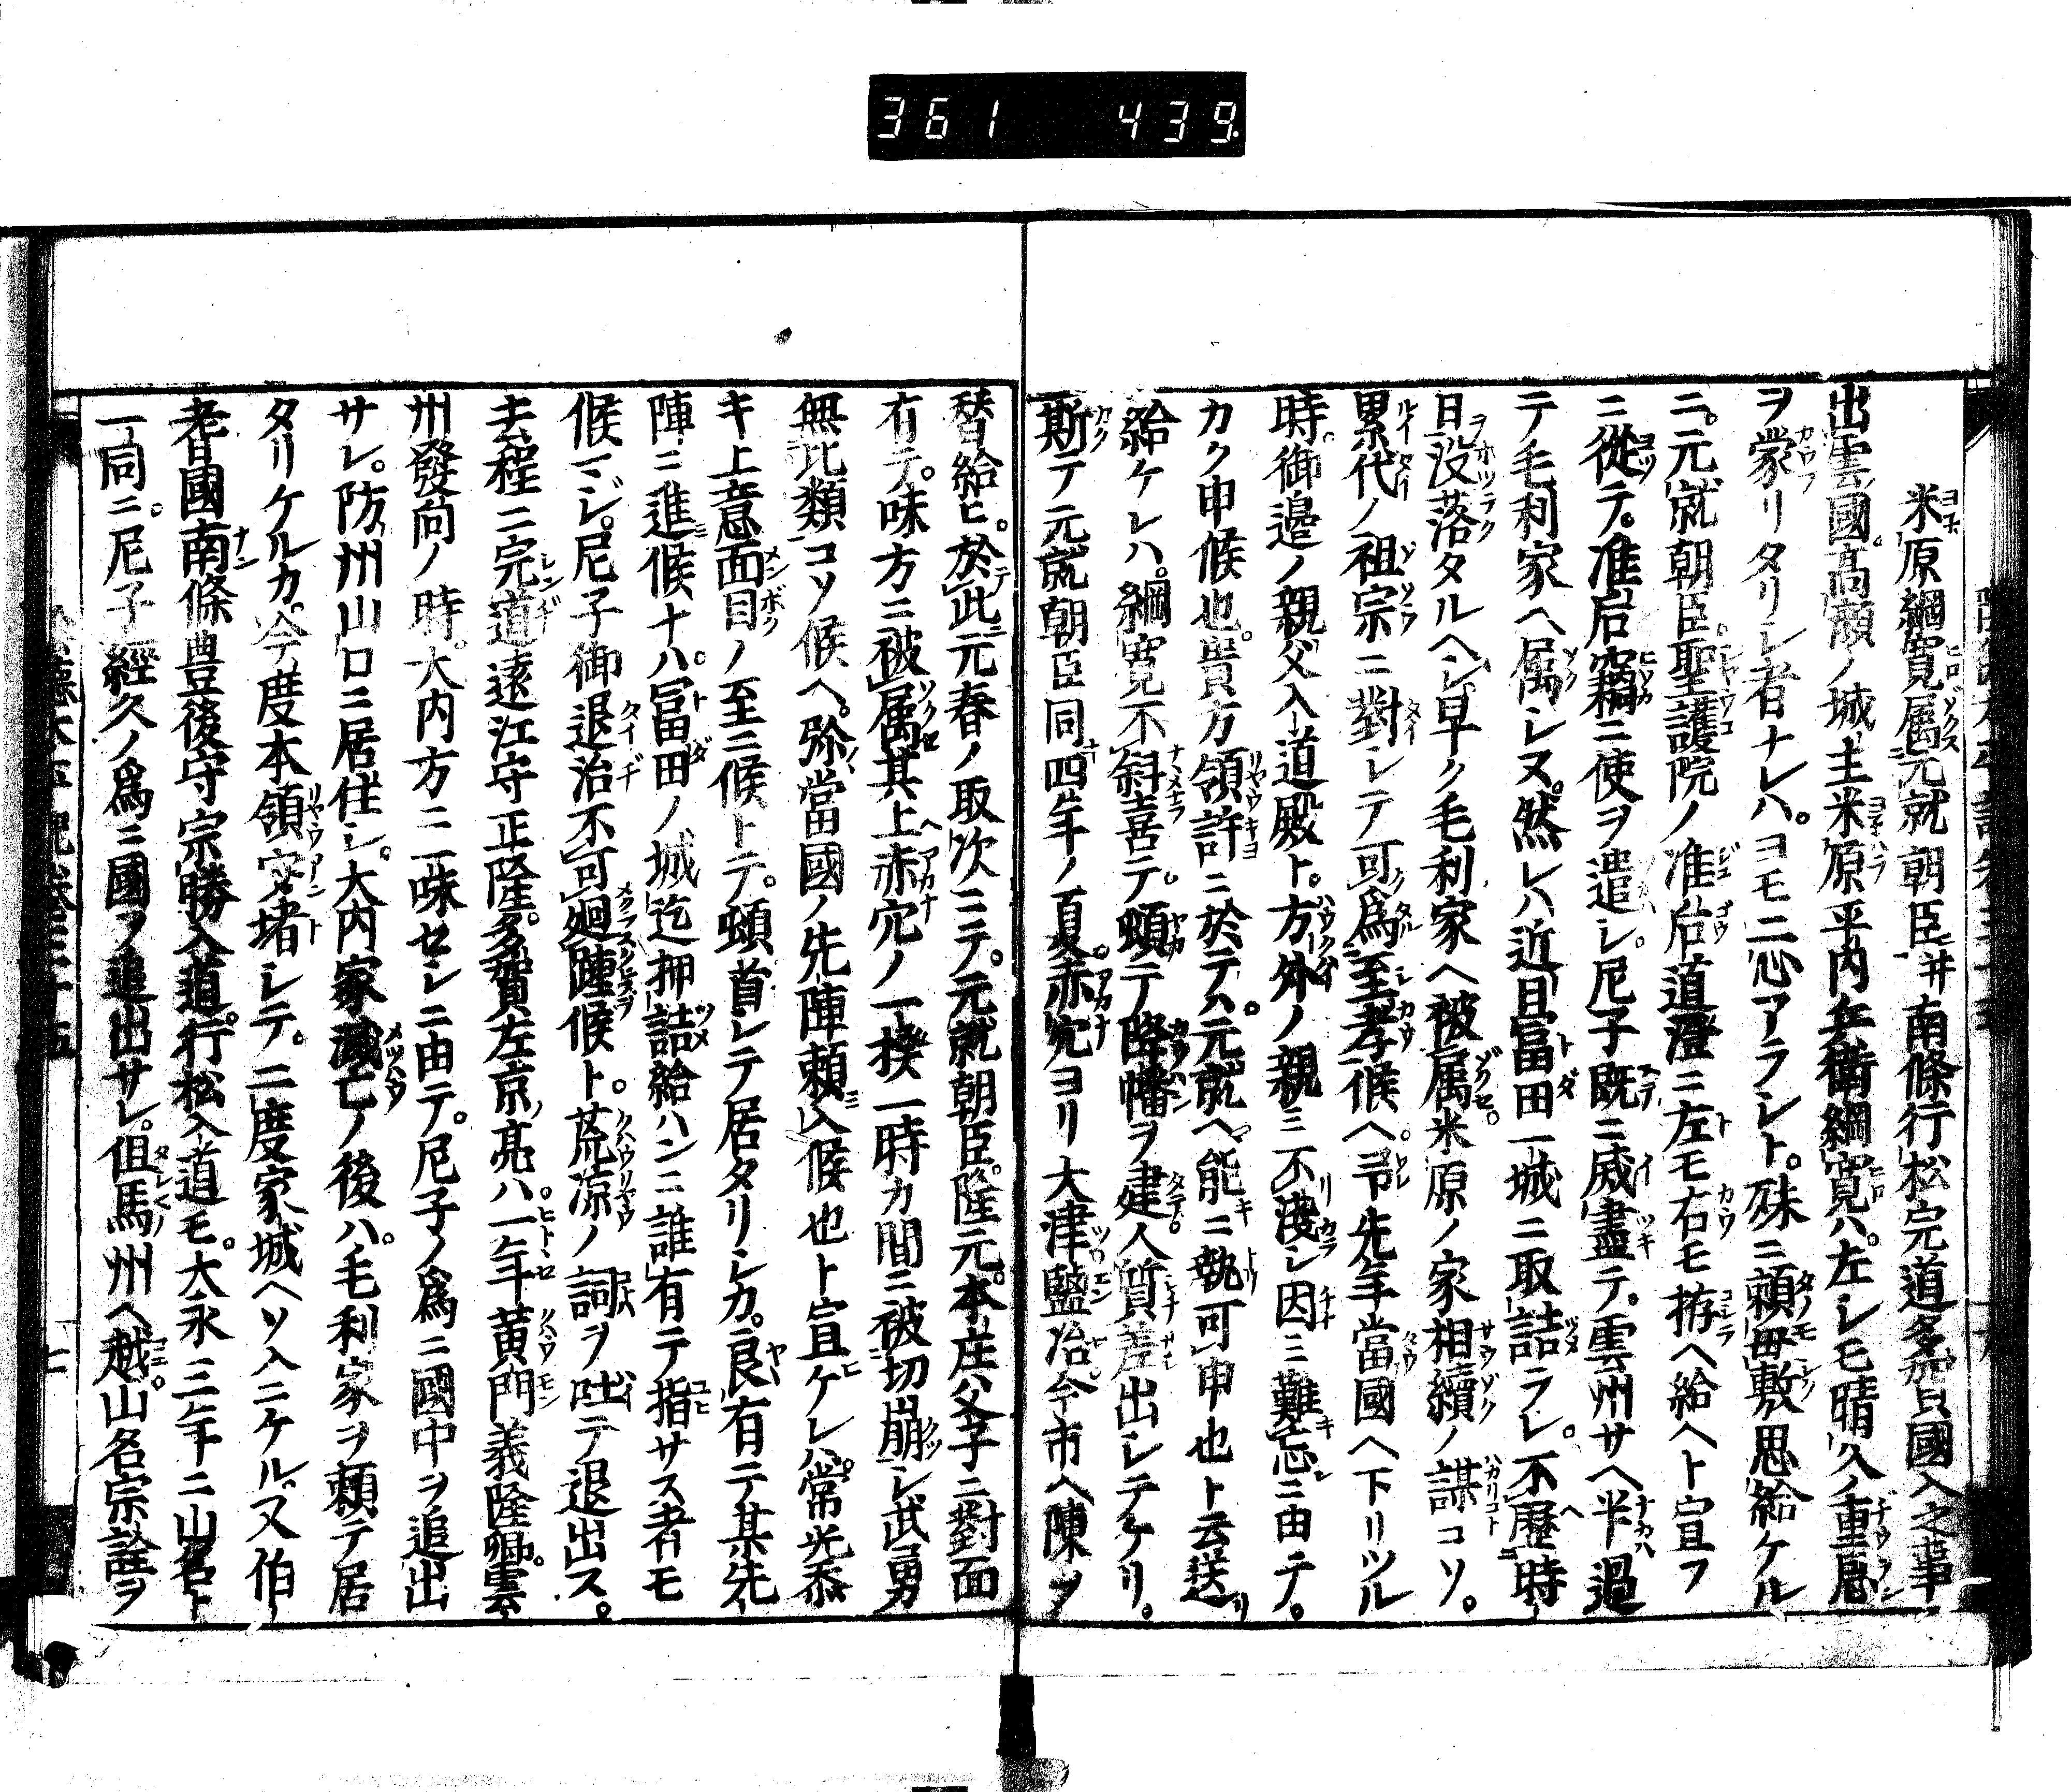 361 439.
米原綱寛属元就朝臣并南條行松完道多賀國入之事
出雲國髙瀬ノ城主米原平内兵衛綱寛ハ。左シモ晴久ノ重恩
ヲ蒙リタリシ者ナレハ。ヨモ二心アラシト。殊ニ頼母敷思給ケル
ニ。元就朝臣。聖護院ノ准后道澄ニ左モ右モ拵ヘ給ヘト宣フ
ニ從テ。准后竊ニ使ヲ遣シ。尼子既ニ威盡テ。雲州サヘ半過
テ毛利家ヘ属シヌ。然レハ近日冨田一城ニ取詰ラレ。不歴時
日没落タルヘシ。早ク毛利家ヘ被属米原ノ家相續ノ謀コソ。
累代ノ祖宗ニ對シテ可為至孝候ヘ。予先年當國ヘ下リツル
時。御邉ノ親父入道殿ト。方外ノ親ミ不淺シ因ミ難忘ニ由テ。
カク申候也。貴方領許ニ於テハ。元就ヘ能ニ執可申也ト云送リ
給ケレハ。綱寛不斜喜テ。頓テ降幡ヲ建。人質差出シテケリ。
斯テ元就朝臣同四年ノ夏。赤穴ヨリ大津鹽冶今市ヘ陳ヲ
替給ヒ。於此元春ノ取次ニテ。元就朝臣。隆元。本庄父子ニ對面
有テ。味方ニ被属其上赤穴ノ一揆一時カ間ニ被切崩シ武勇
無比類コソ候ヘ。弥當國ノ先陣頼入候也ト宣ケレハ。常光忝
キ上意面目ノ至ニ候トテ。頓首シテ居タリシカ。良有テ某先
陣ニ進候ナハ。冨田ノ城迄押詰給ハンニ誰有テ指サス者モ
候マジ。尼子御退治不可廻踵候ト。荒凉ノ詞ヲ吐テ退出ス。
去程ニ完道遠江守正隆。多賀左京亮ハ。一年黄門義隆卿。雲
州發向ノ時。大内方ニ一味セシニ由テ。尼子ノ為ニ國中ヲ追出
サレ。防州山口ニ居住シ。大内家滅亡ノ後ハ。毛利家ヲ頼テ居
タリケルカ。今度本領安堵シテ。二度家城ヘソ入ニケル。又伯
耆國南條豊後守宗勝入道。行松入道モ。大永三年ニ山名ト
一同ニ。尼子經久ノ為ニ國ヲ追出サレ。但馬州ヘ越。山名宗詮ヲ